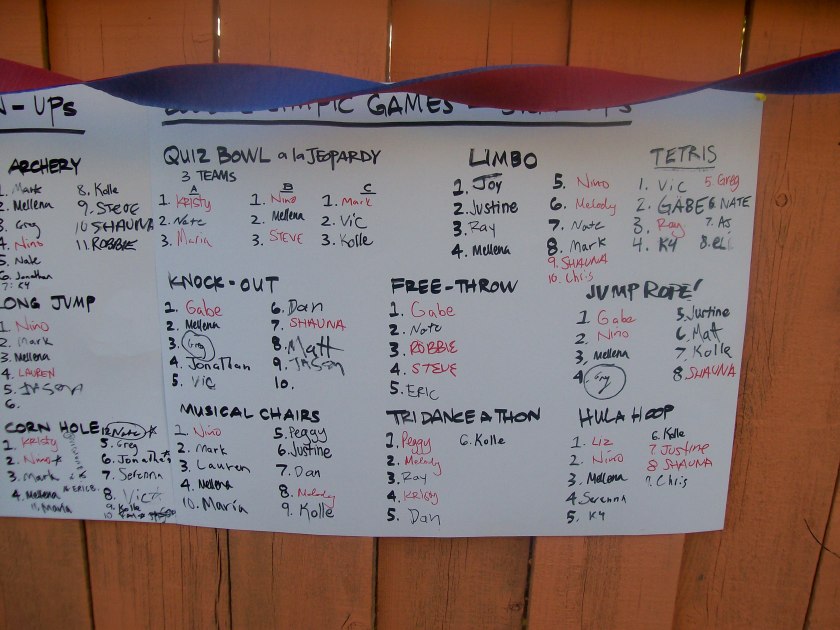 N-UPs
OLYMPIC GAMES - SIGN-UPS
ARCHERY
1. Mark
2. Mellena
3. Greg
4. Nino
5. Nate
6. Jonathan
7. Ky
8. Kolle
9. STEVE
10 SHAUNA
11. ROBBIE
LONG JUMP
1. Nino
2. Mark
3. Mellena
4. LAUREN
5. JASON
6.
CORN HOLE
1. Kristy
2. Nino
3. Mark
4. Mellena
11. Maria
12. Nate
5. Greg
6. Jonathan
7. Serenna
8. Vic
9. Kolle
10
QUIZ BOWL a la JEOPARDY
3 TEAMS
A
1. Kristy
2. Nate
3. Maria
B
1. Nino
2. Mellena
3. STEVE
C
1. Mark
2. Vic
3. Kolle
KNOCK-OUT
1. Gabe
2. Mellena
3. Greg
4. Jonathan
5. Vic
6. Dan
7. SHAUNA
8. Matt
9. JASON
10.
MUSICAL CHAIRS
1. Nino
2. Mark
3. Lauren
4. Mellena
10. Maria
5. Peggy
6. Justine
7. Dan
8. Melody
9. Kolle
LIMBO
1. Joy
2. Justine
3. Ray
4. Mellena
5. Nino
6. Melody
7. Nate
8. Mark
9. SHAUNA
10. Chris
FREE-THROW
1. Gabe
2. Nate
3. ROBBIE
4. STEVE
5. ERIC
TRI DANCE A THON
1. Peggy
2. Melody
3. Ray
4. Kristy
5. Dan
6. Kolle
TETRIS
1. Vic
2. GABE
3. Ray
4. Ky
5. Greg
6. NATE
7. AJ
8. ELI
JUMP ROPE!
1. Gabe
2. Nino
3. Mellena
4. Greg
5. Justine
6. Matt
7. Kolle
8 SHAUNA
HULA HOOP
1. Liz
2. Nino
3. Mellena
4 Serenna
5. Ky
6. Kolle
7 Justine
8 SHAUNA
9. Chris